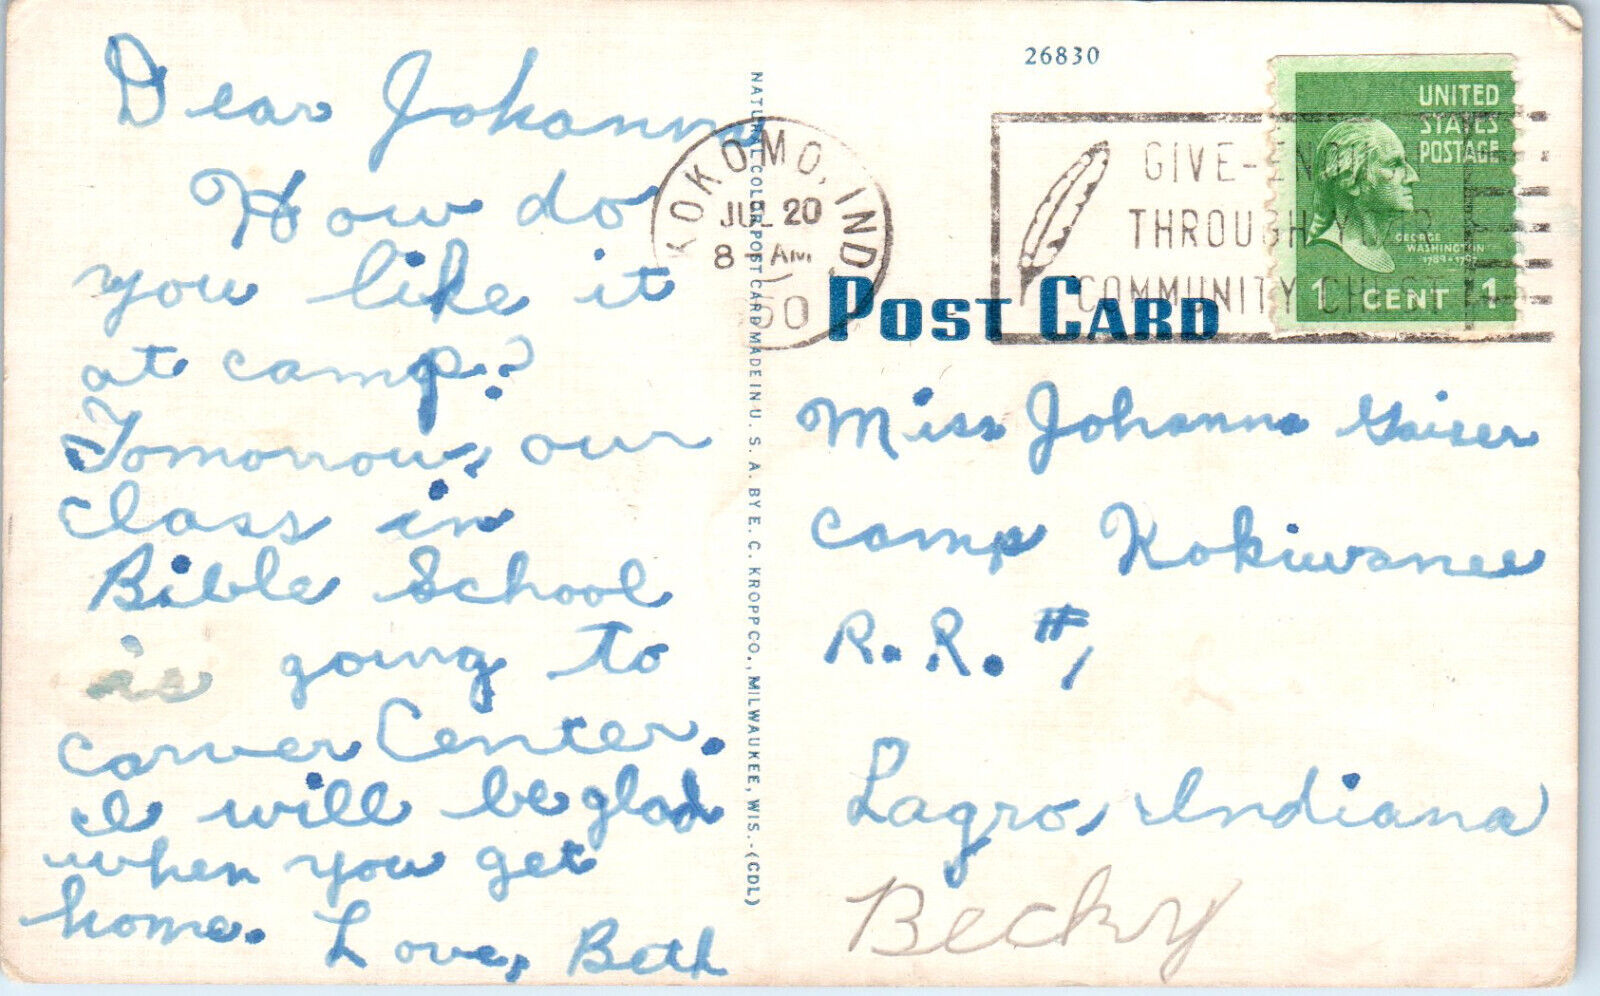 Dear Johanna
How do
you like it
at camp?
Tomorrow, our
class in
Bible School
is going to
Carver Center.
I will be glad
when you get
home. Love, Beth
NATURAL COLOR POST CARD MADE IN U. S. A. BY E. C. KROPP CO., MILWAUKEE, WIS.-(CDL)
26830
KOKOMO, IND.
JUL 20
8 AM
50
GIVE-
THROUGH YOUR
COMMUNITY CHEST
UNITED
STATES
POSTAGE
GEORGE
WASHINGTON
1789-1797
1 CENT 1
POST CARD
Miss Johanna Gaiser
Camp Kokiwanee
R. R. #1
Lagro, Indiana
Becky